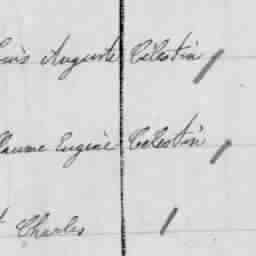 Louis Auguste Célestin /
llaume Eugène Célestin /
t Charles /